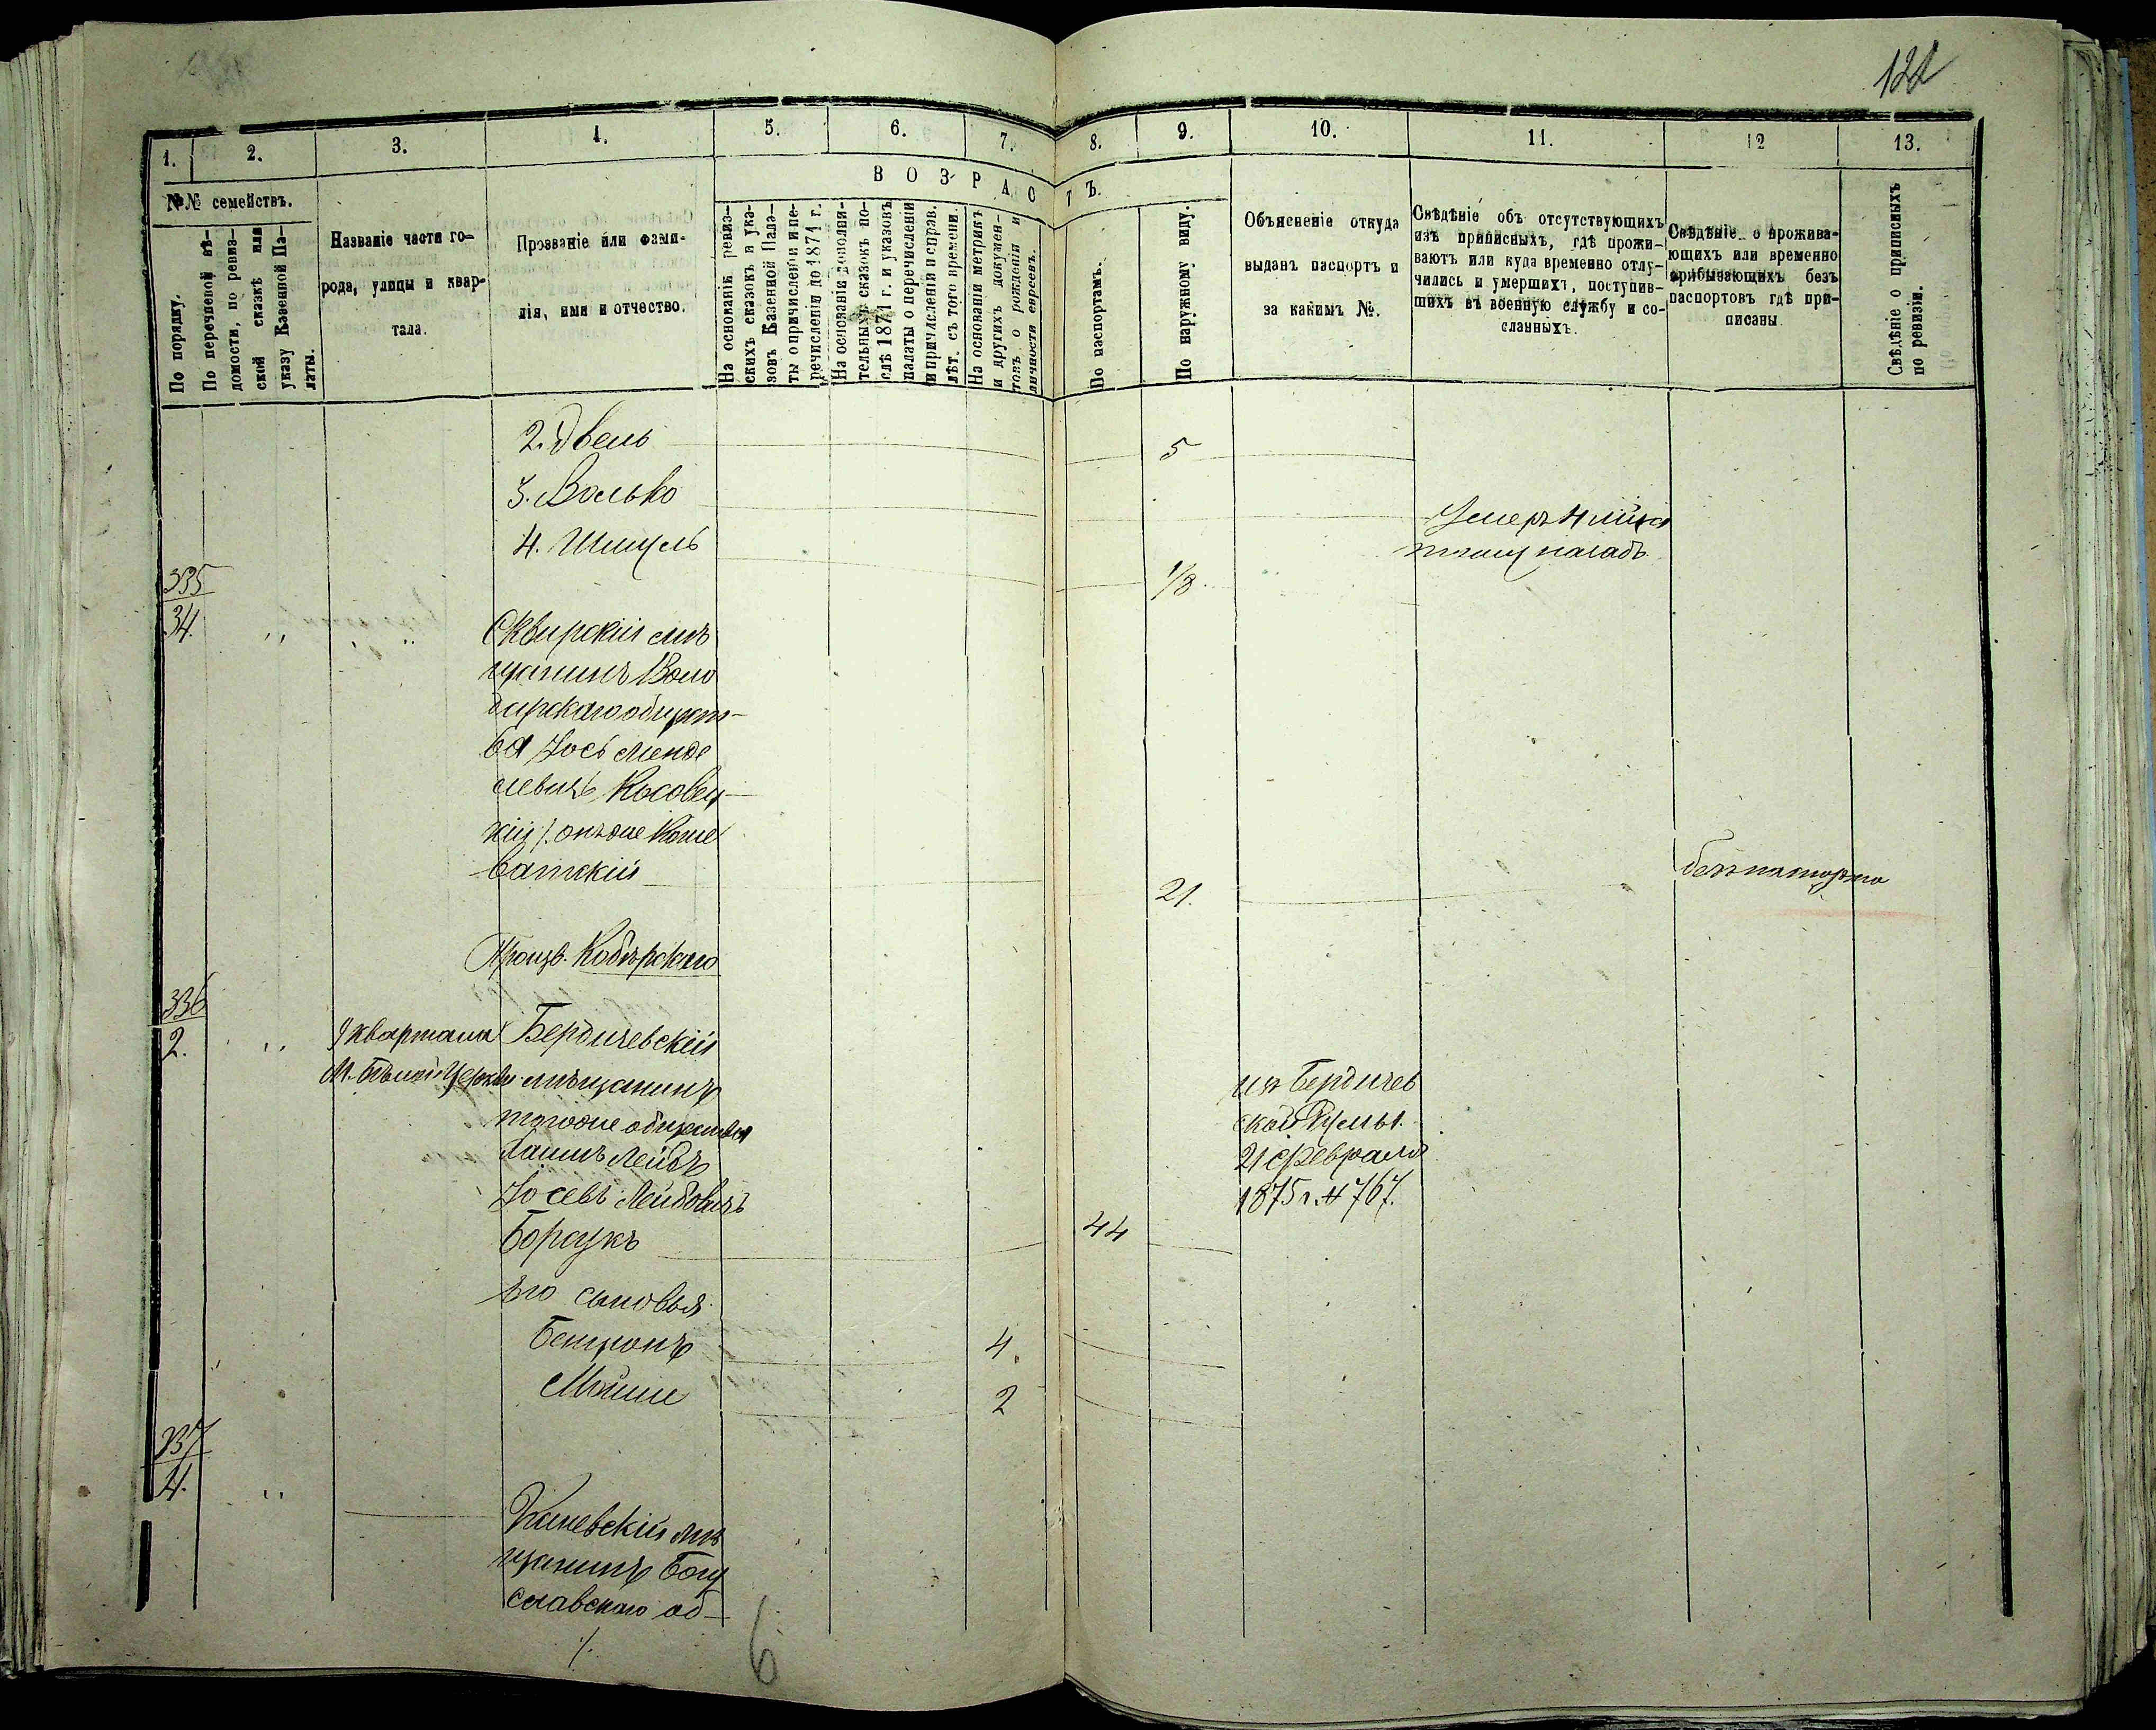 122
1. 2. 3. 4. 5. 6. 7. 8. 9. 10. 11. 12 13.
№№ семействъ.
По порядку.
По перечневой вѣ-
домости, по ревиз-
ской сказкѣ или
указу Казенной Па-
латы.
Названіе части го-
рода, улицы и квар-
тала.
Прозваніе или фами-
лія, имя и отчество.
ВОЗРАСТЪ.
На основаніи ревиз-
скихъ сказокъ и ука-
зовъ Казенной Пала-
ты о причисленіи и пе-
речисленіи до 1871 г.
На основаніи дополни-
тельныхъ сказокъ по-
слѣ 1871 г. и указовъ
палаты о перечисленіи
и причисленіи исправ.
лѣт. съ того времени.
На основаніи метрикъ
и другихъ докумен-
товъ о рожденіи и
личности евреевъ.
По паспортамъ.
По наружному виду.
Объясненіе откуда
выданъ паспортъ и
за какимъ №.
Свѣдѣніе объ отсутствующихъ
изъ приписныхъ, гдѣ прожи-
ваютъ или куда временно отлу-
чились и умершихъ, поступив-
шихъ въ военную службу и со-
сланныхъ.
Свѣдѣніе о прожива-
ющихъ или временно
прибывающихъ безъ
паспортовъ гдѣ при-
писаны
Свѣдѣніе о приписныхъ
по ревизіи.
2. Двель
5
3. Волько
Умеръ 4
тому назадъ
4. Шмуль
1/8
335
34.
Сквирскій мѣ
щанинъ Воло
дарскаго общест-
ва Іось Менде
левичъ Косовец-
кій онъ же Коше
ватскій
21.
безъ паспорта
336
2.
9 квартала
М. Бѣлой Церкви
Бердичевскій
мѣщанинъ
того же общества
Лейбъ
Іосевъ Лейбовичъ
Борсукъ
44
изъ Бердичев
ской Думы
21 февраля
1875 г. № 767.
Его сыновья
Бенціонъ
4
Мойше
2
337
4.
Каневскій мѣ
щанинъ Богу
славскаго об-
6